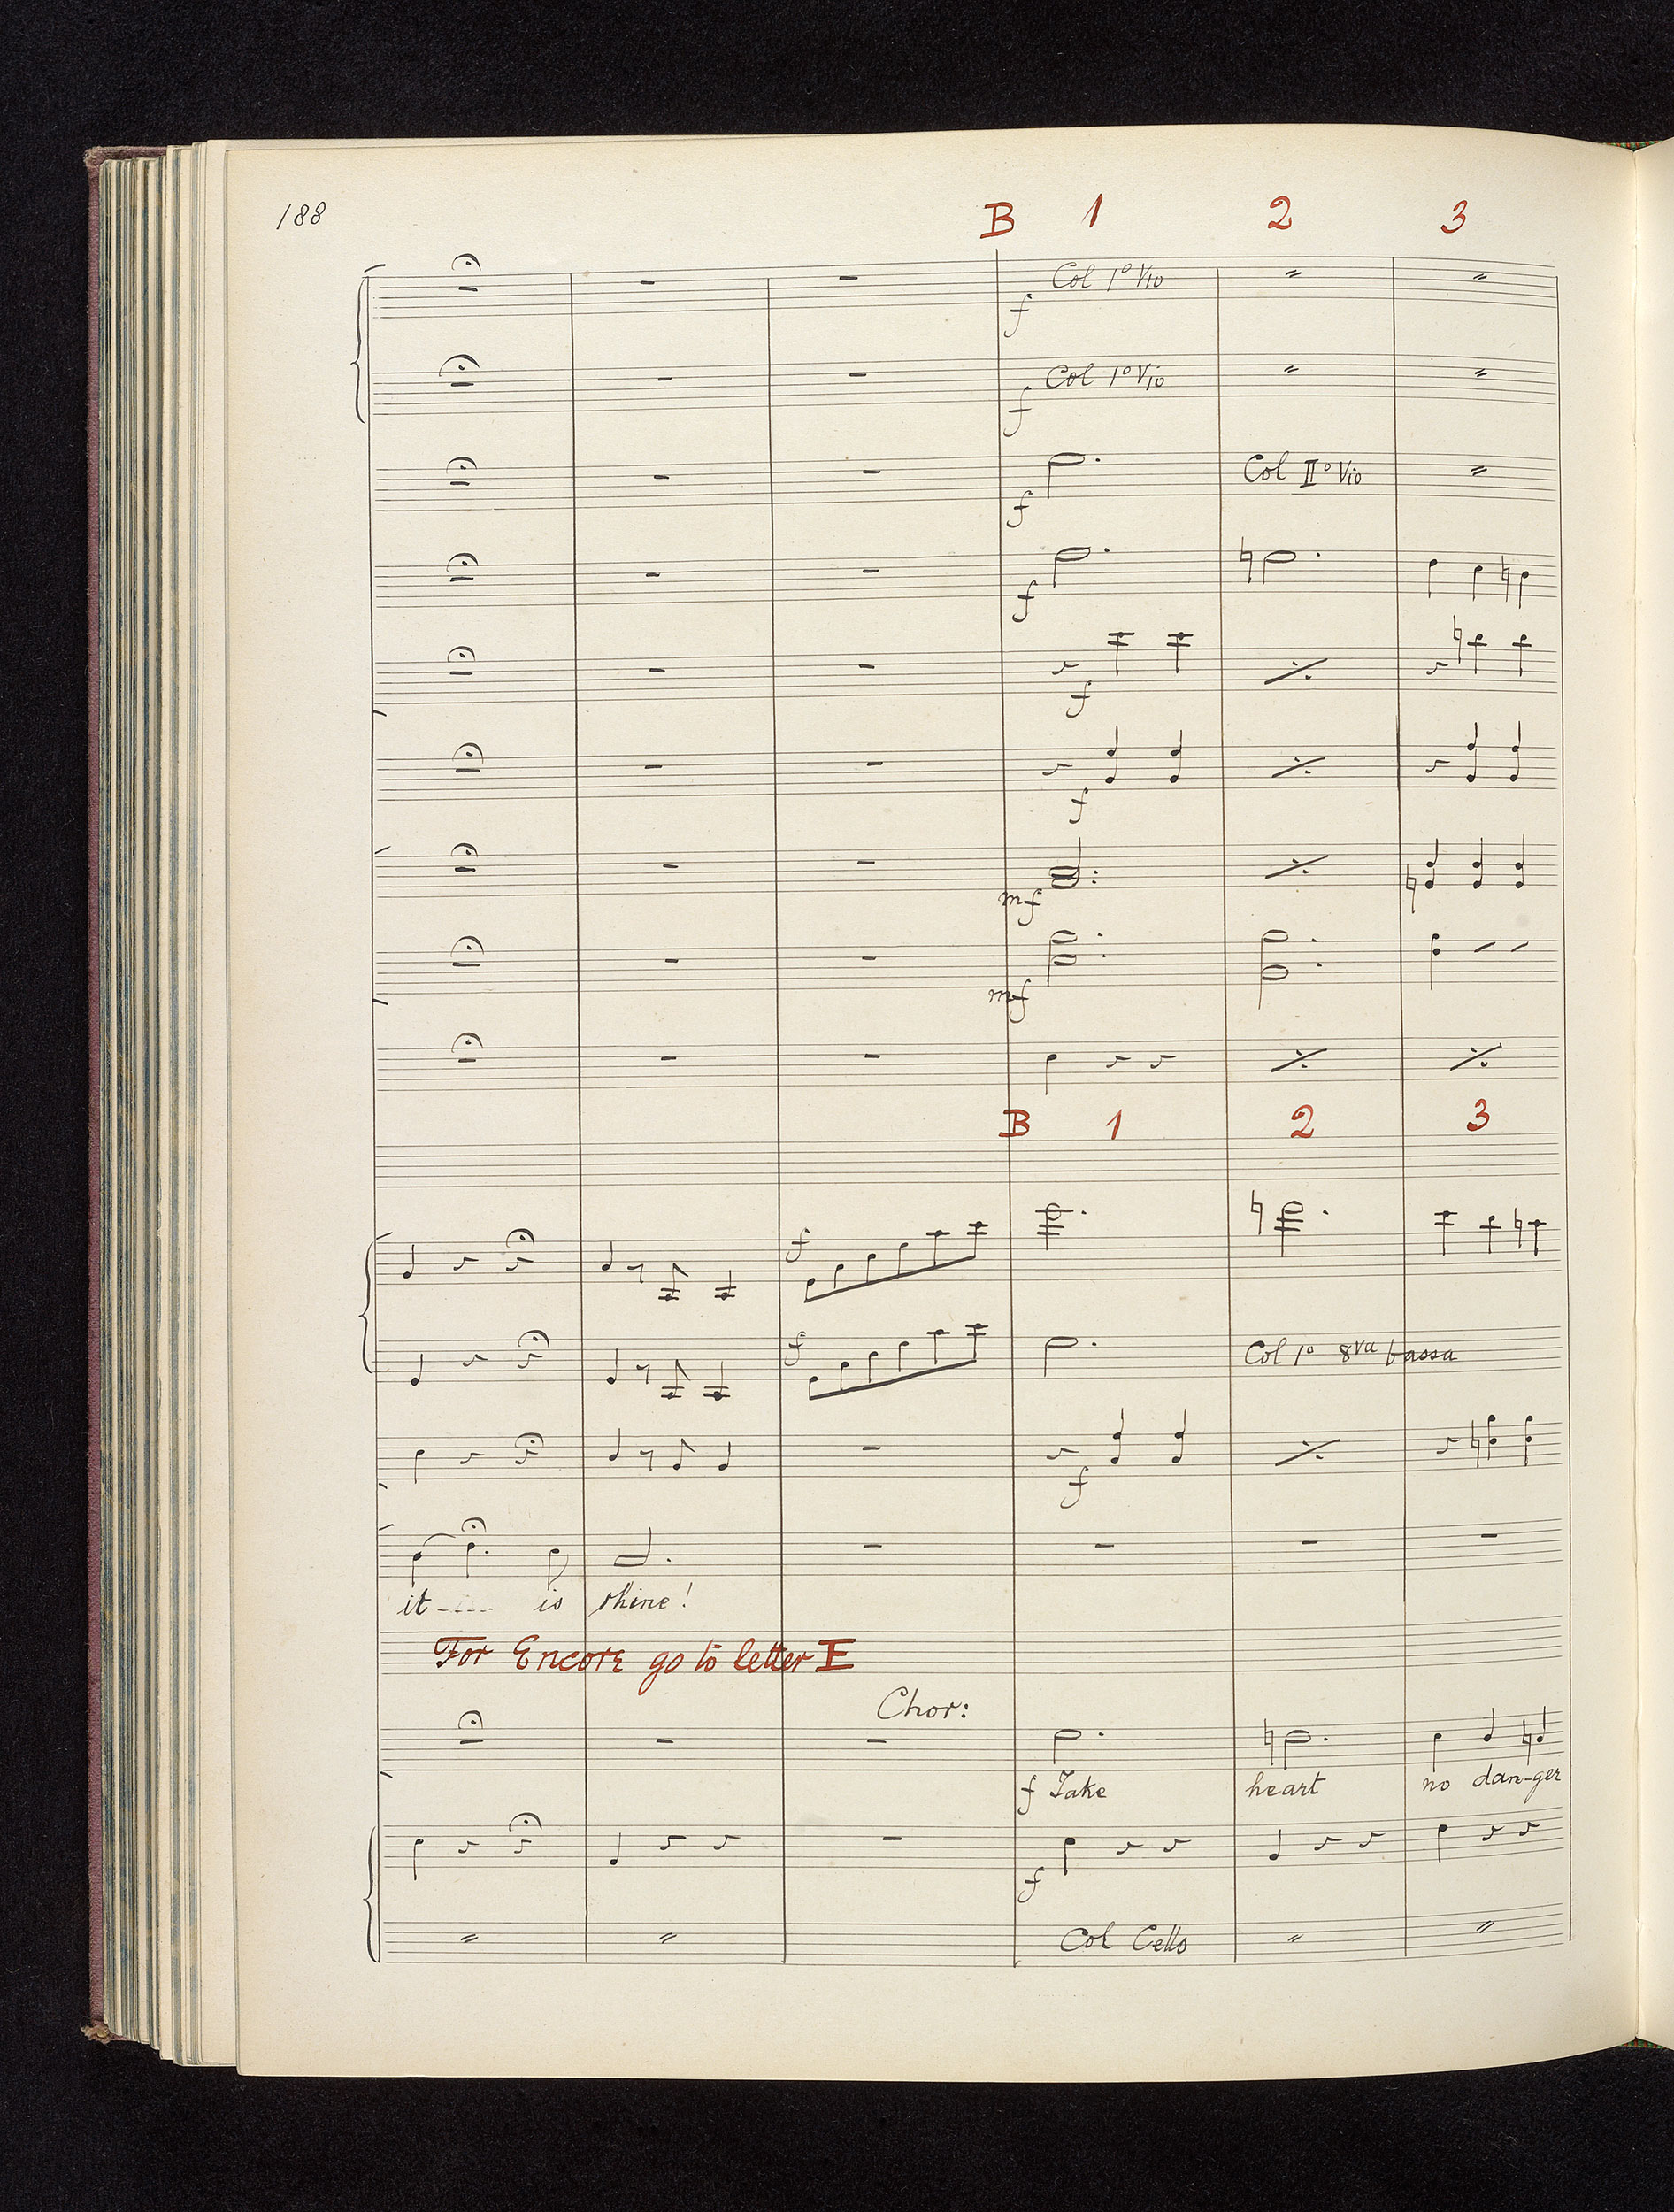 188
B 1 2 3
Col 1º Vio
f
Col 1º Vio
f
Col IIº Vio
f
f
f
f
mf
mf
B 1 2 3
f
f
Col 1º 8va bassa
f
it - - - - is thine!
For Encore go to letter E
Chor:
f Take heart no dan-ger
f
Col Cello